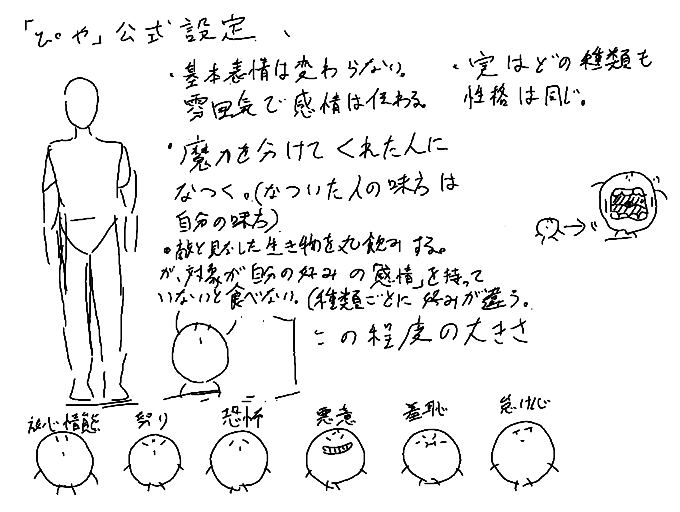 「ぴや」公式設定、
・基本表情は変わらない。
雰囲気で感情は伝わる。
・実はどの種類も
性格は同じ。
・魔力を分けてくれた人に
なつく。(なついた人の味方は
自分の味方)
・敵と見なした生き物を丸飲みする。
が、対象が自分の好みの「感情」を持って
いないと食べない。(種類ごとに好みが違う。
この程度の大きさ
放心情態 怒り 恐怖 悪意 羞恥 怠け心